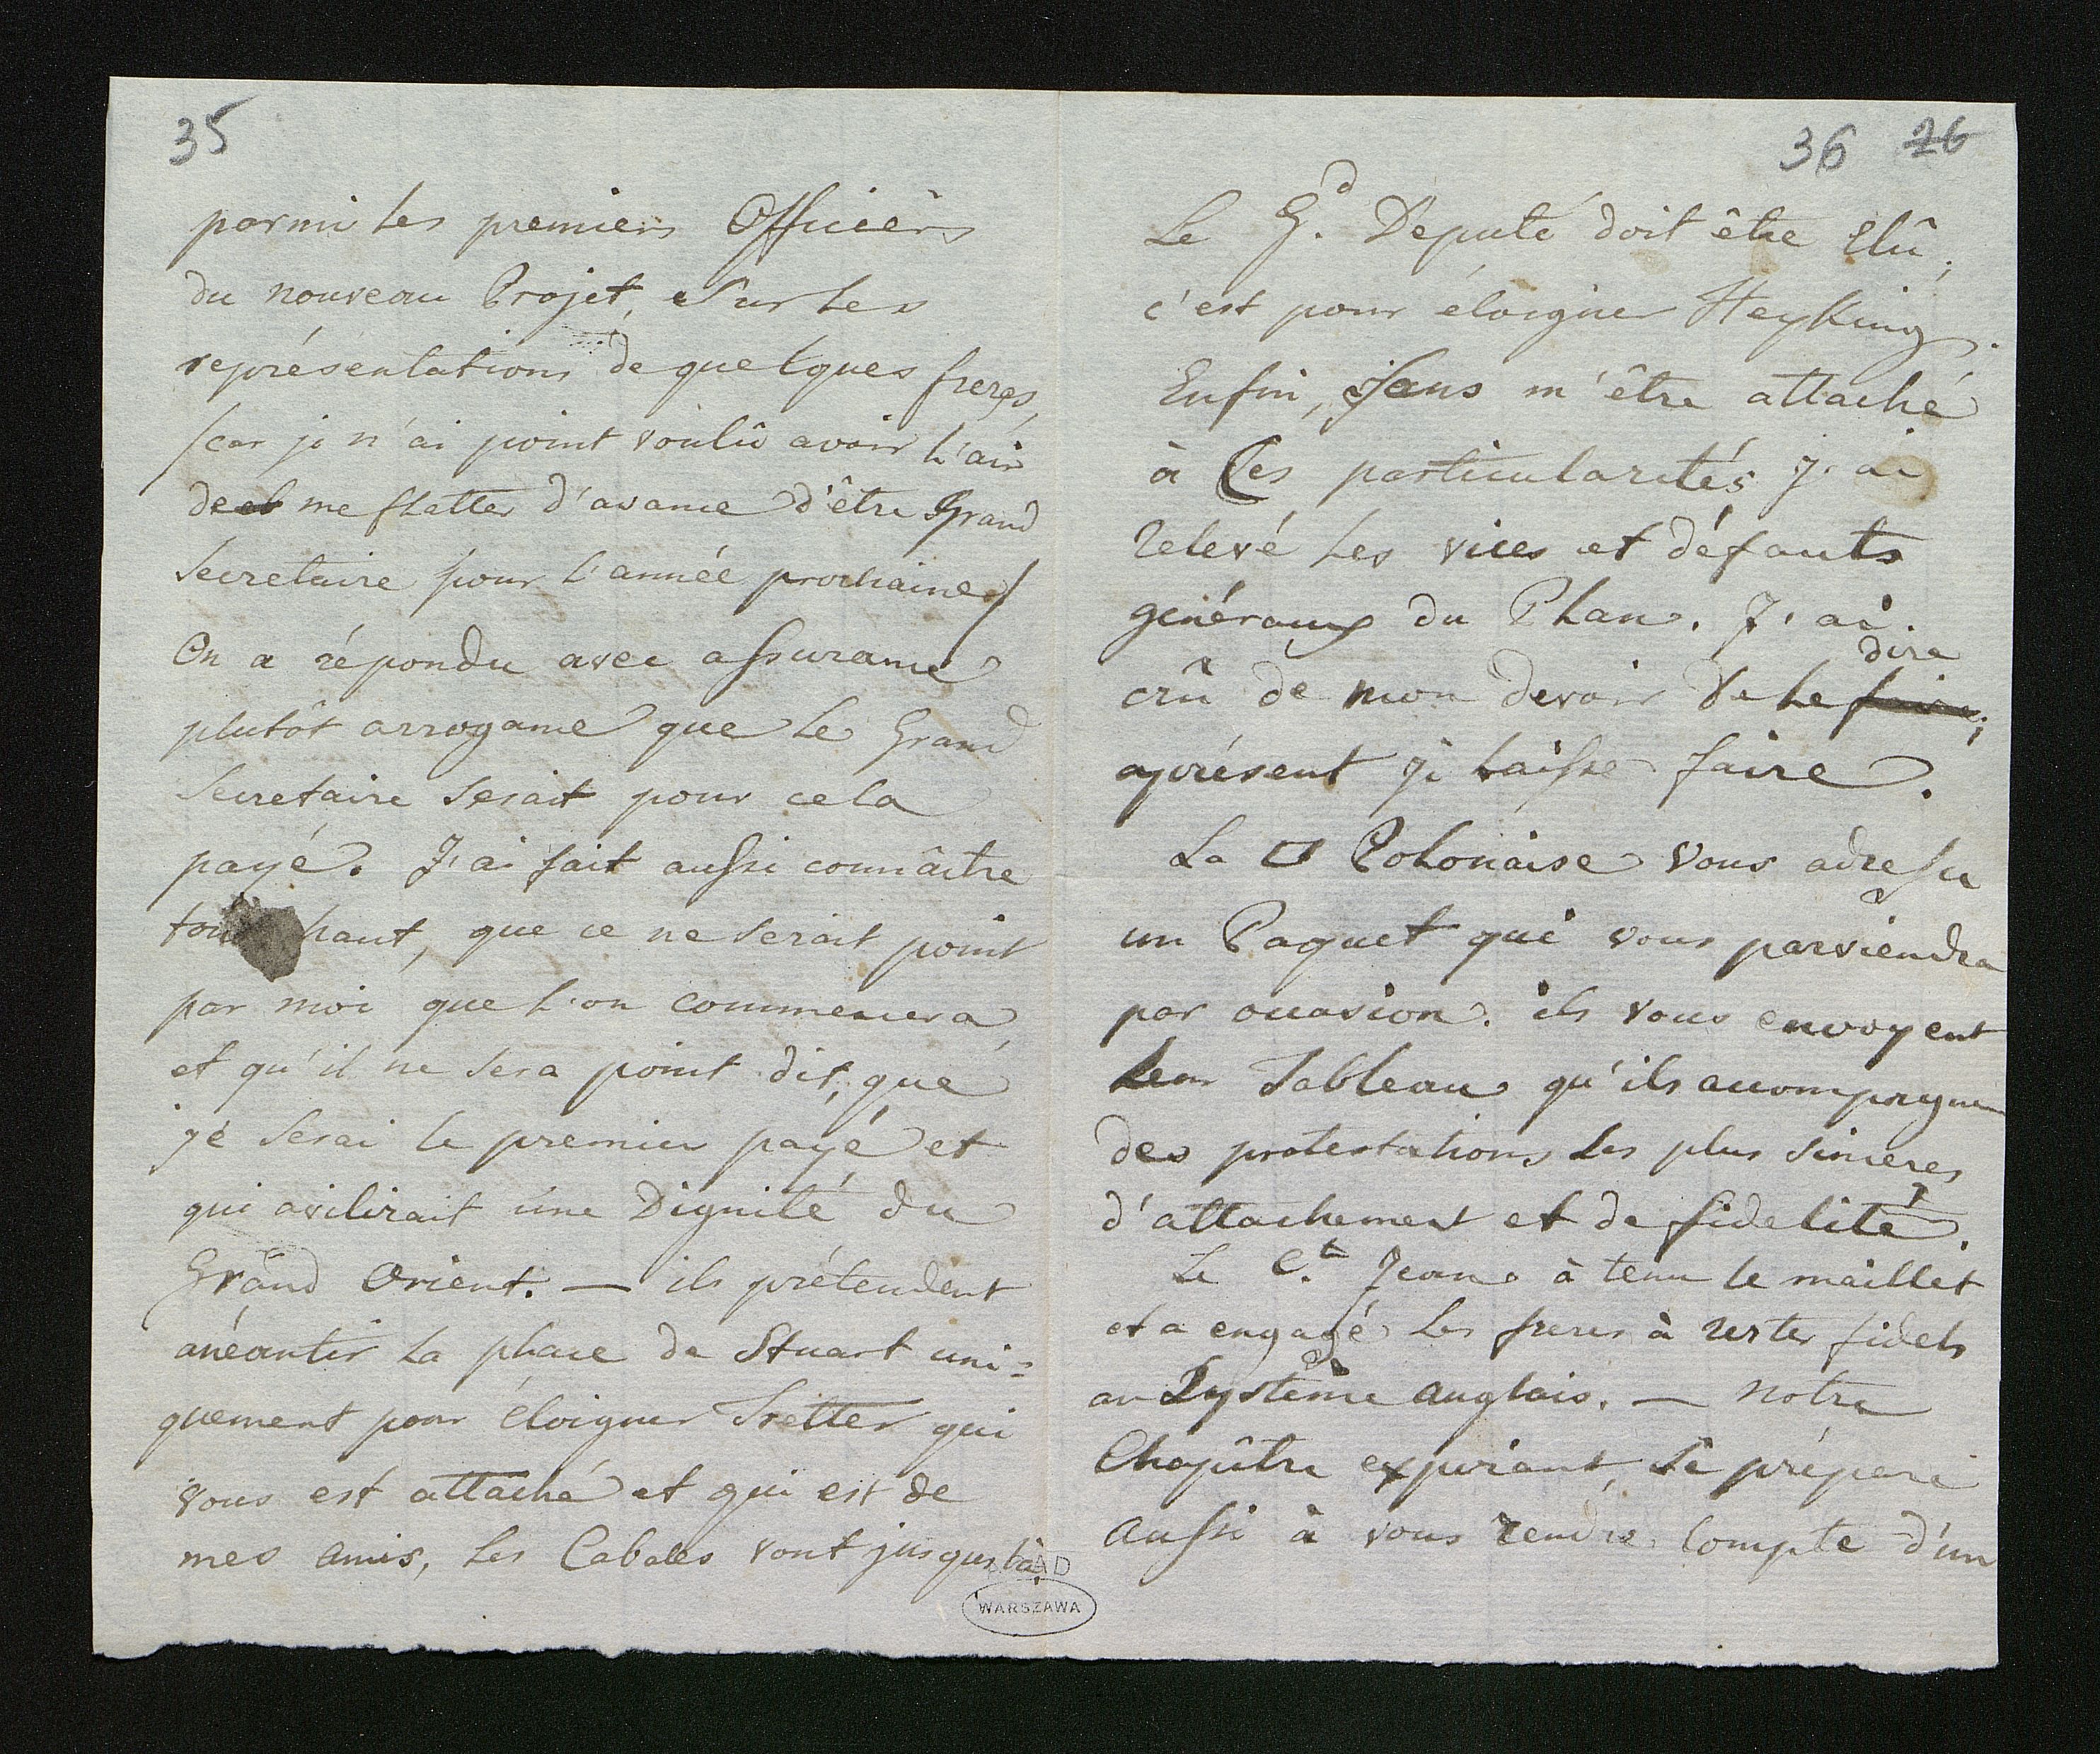 35
parmi les premiers Officiers
du nouveau Projet, Sur les
représentations de quelques freres,
/car je n'ai point voulû avoir l'air
de me flatter d'avance d'être Grand
Secretaire pour l'année prochaine/
On a répondu avec assurance
plutôt arrogance que le Grand
Secretaire serait pour cela
payé. J'ai fait aussi connâitre
tout haut, que ce ne serait point
par moi que l'on commencera,
et qu'il ne sera point dit, que
je serai le premier payé et
qui avilirait une Dignité du
Grand Orient. — ils prétendent
anéantir la place de Stuart uni=
quement pour éloigner Tretter qui
vous est attaché et qui est de
mes amis, les Cabales vont jusques là.
36 26
Le G.d Deputé doit être Elû,
c'est pour éloigner Heyking.
Enfin, sans m'être attaché
à Ces particularités j'ai
relevé les vices et défauts
généraux du Plan. J'ai
crû de mon devoir de le faire dire;
aprésent je laisse faire.
La □ Polonaise vous adresse
un Paquet qui vous parviendra
par occasion. ils vous envoyent
leur Tableau qu'ils accompagnent
des protestations les plus sinceres
d'attachement et de fidelité.
Le C.te Jean a tenu le maillet
et a engagé les freres à rester fidels
au Système anglais. — Notre
Chapître expirant, se prépare
aussi à vous rendre Compte d'un
AGAD
WARSZAWA